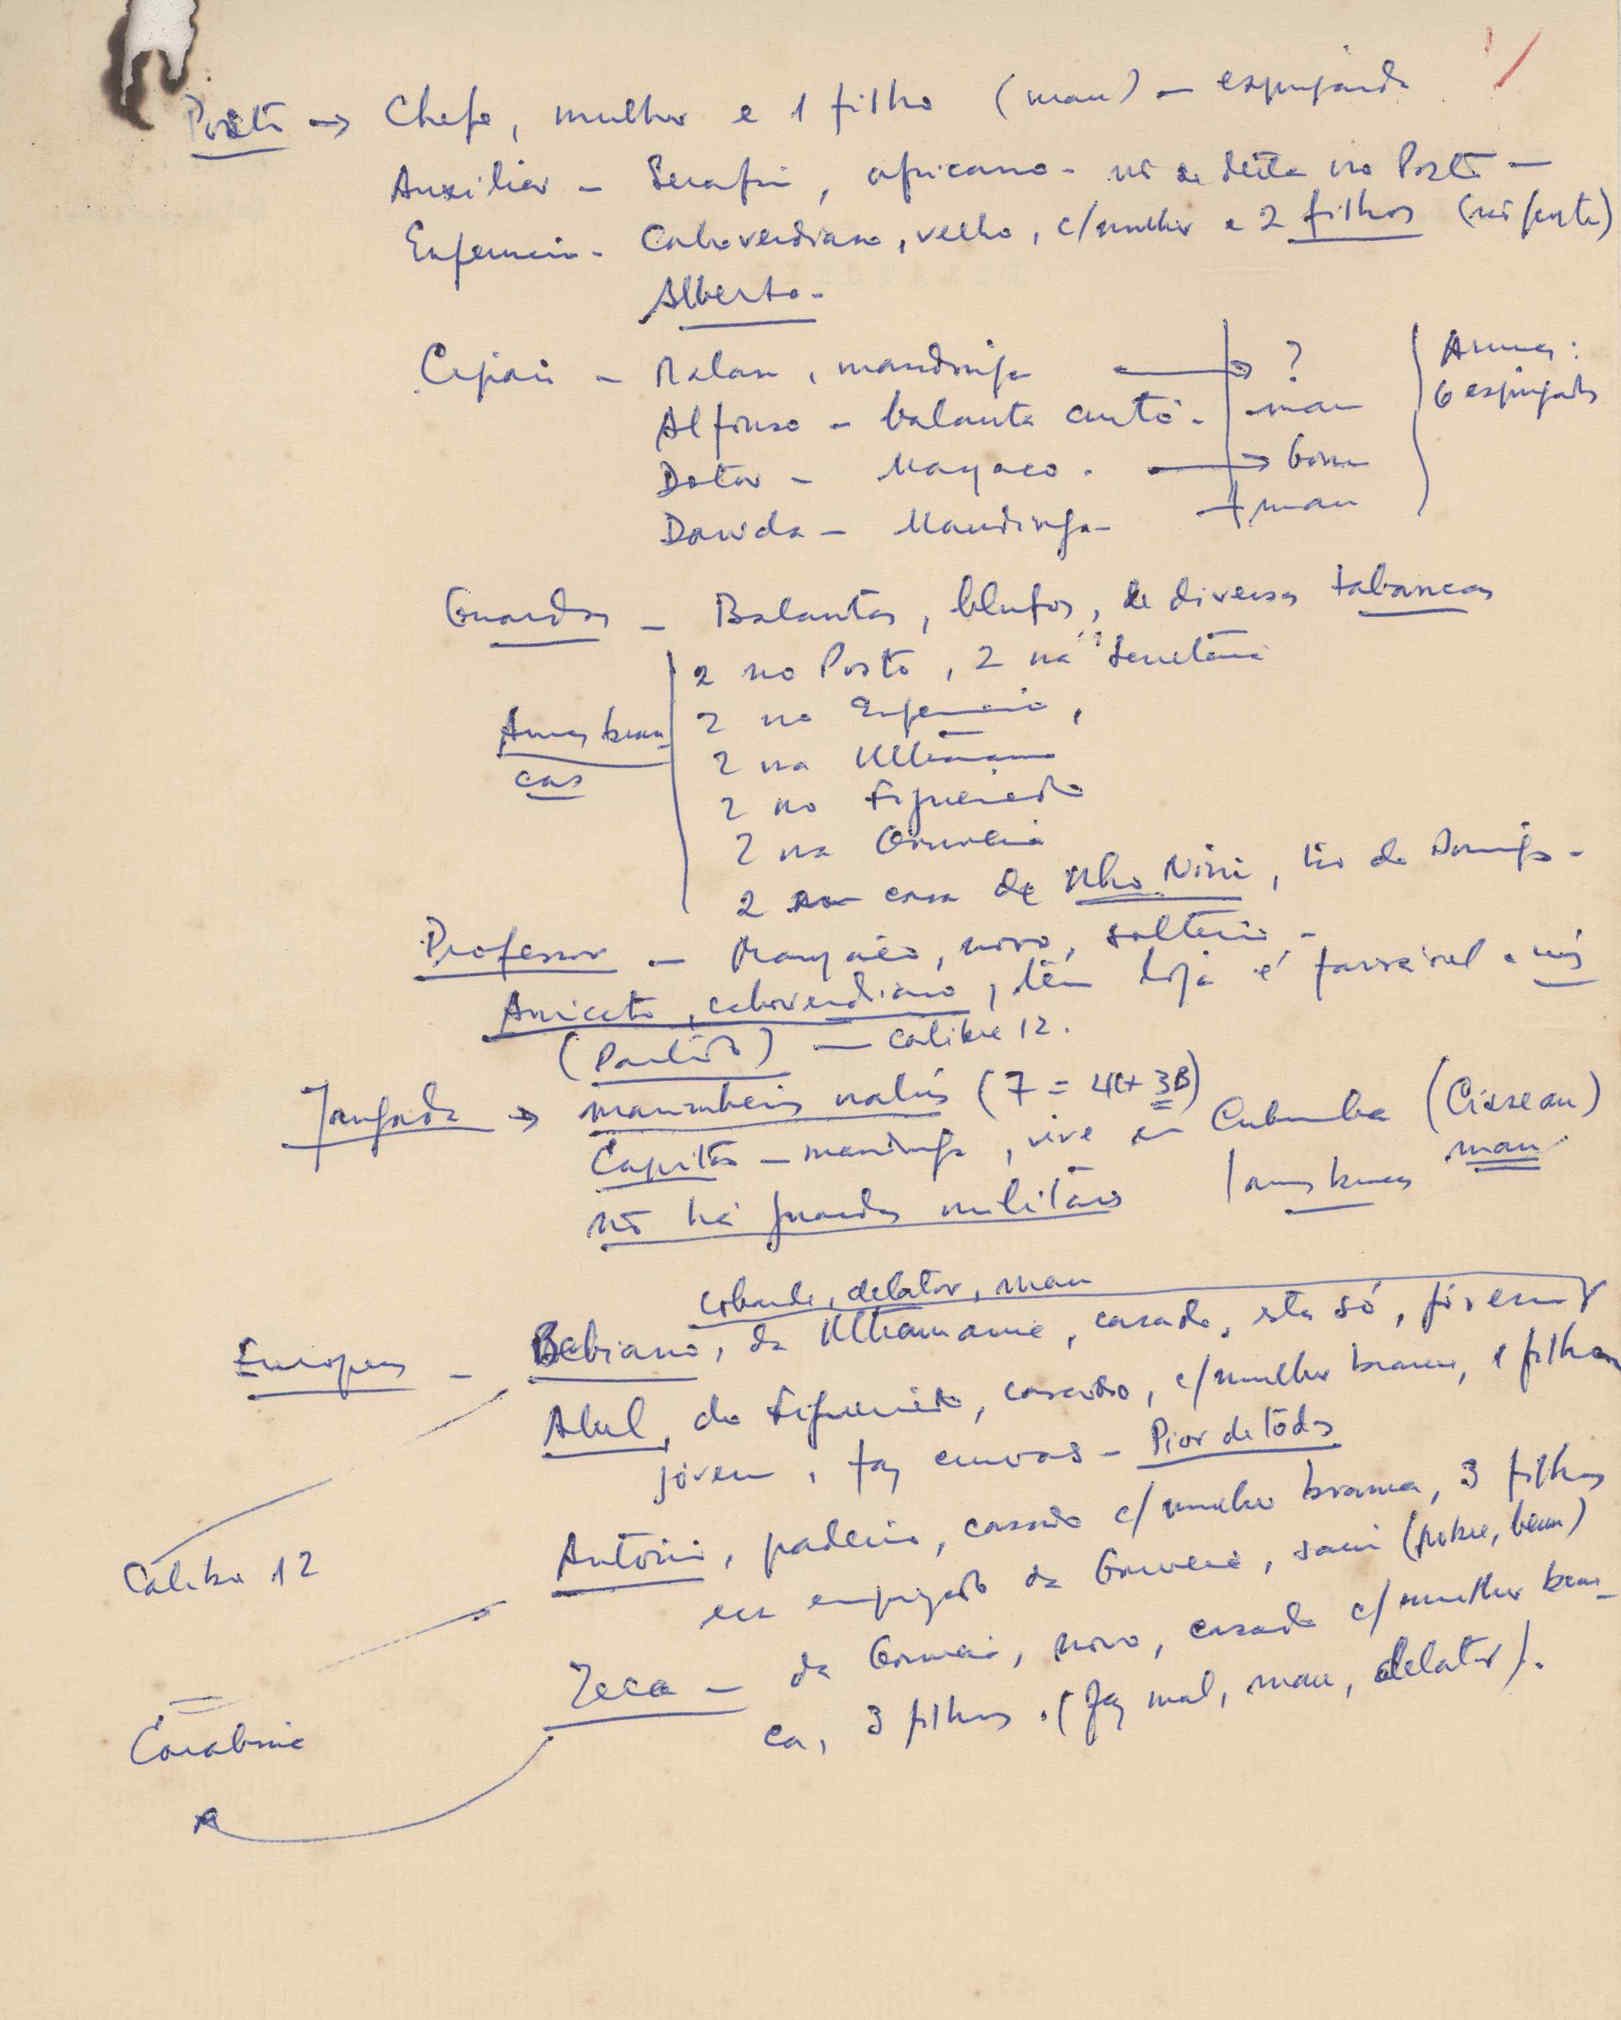 Posto → Chefe, mulher e 1 filho (mau) — espingarda
Auxiliar — Serafim, africano - nõ se deita no Posto —
Enfermeiro - Caboverdiano, velho, c/mulher e 2 filhos
Alberto -
Cipais — Malan, mandinga → ?
Alfonso — balanta - mau
Dotor — Manjaco - → bom
Dauda — Mandinga - + mau
Armas:
6 espingardas
Guardas — Balantas, blufos, de diversas tabancas
2 no Posto, 2 na Secretaria
2 no Enfermeiro,
2 na Ultramarina
2 no Figueiredo
2 na Gouveia
2 casa de Nho Nini, tio do Domingos -
Armas bran-
cas
Professor — Manjaco, novo, solteiro -
Aniceto, caboverdiano, tem loja é favorável a nós
(Partido) — Calibre 12.
Jangada → marinheiros nalús (7 = 4 + 3B)
Capitão — mandinga, vive em (Cissean)
mau
nõ há guardas militares | armas brancas
cobarde, delator, mau
Europeus — Bebiano, da Ultramarina, casado, esta só, jovem
Abel, do Figueiredo, casado, c/mulher branca, 1 filho
jovem, faz - Pior de todos
António, padeiro, casado c/ mulher branca, 3 filhos
era empregado da Gouveia, saiu (pobre, bem)
Zeca — da Gouveia, novo, casado c/ mulher bran-
ca, 3 filhos. (faz mal, mau, delator).
Calibre 12
Carabina